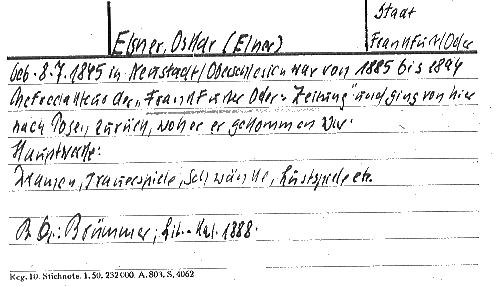 Staat
Elsner, Oskar (Elner)
Frankfurt/Oder
geb. 8.7.1845 in Neustadt/Oberschlesien war von 1885 bis 1894
Chefredakteur der „Frankfurter Oder-Zeitung" und ging von hier
nach Posen zurück, woher er gekommen war.
Hauptwerke:
Dramen, Trauerspiele, Schwänke, Lustspiele etc.
Brümmer, Lit.-Kal. 1888.
Reg. 10. Stichnote. 1. 50. 232000. A. 803. S. 4062